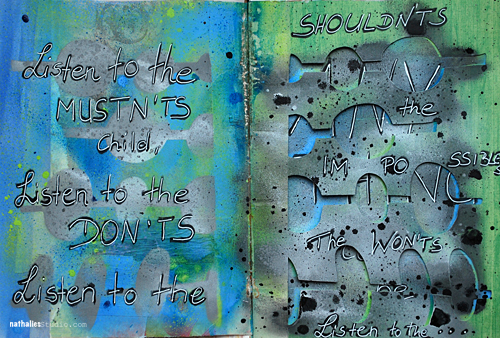 Listen to the
MUSTN'TS
Child,
Listen to the
DON'TS
Listen to the
SHOULDN'TS
the
IMPOSSIBLES
The WON'TS
Listen to the...
nathaliesStudio.com